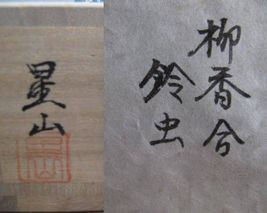 柳香合
鈴虫
星山